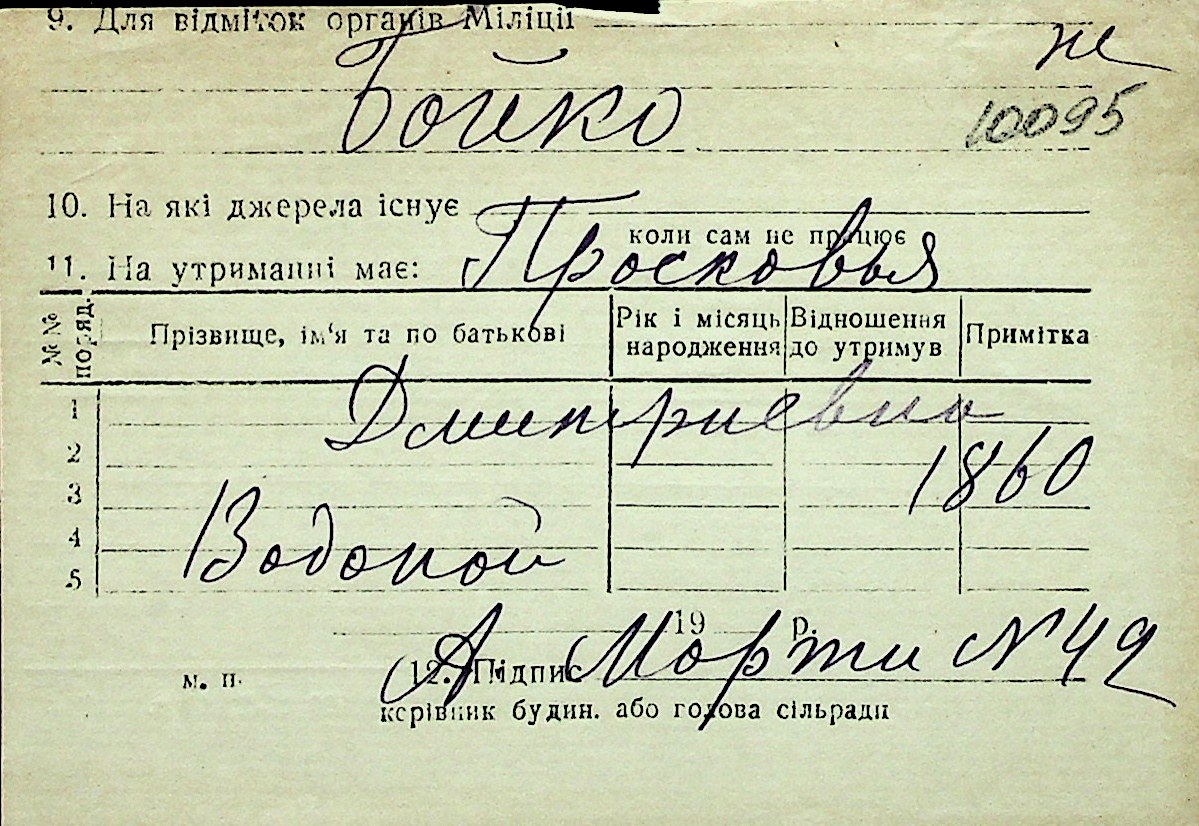 9. Для відміток органів Міліції
же
Бойко
10095
10. На які джерела існує
коли сам не працює
11. На утриманні має:
Просковья
№№ поряд.
Прізвище, ім'я та по батькові
Рік і місяць народження
Відношення до утримув
Примітка
1
Дмитриевна
2
1860
3
4
Водопой
5
19 р.
А. Марти № 49
м. п.
12. Підпис
керівник будин. або голова сільради